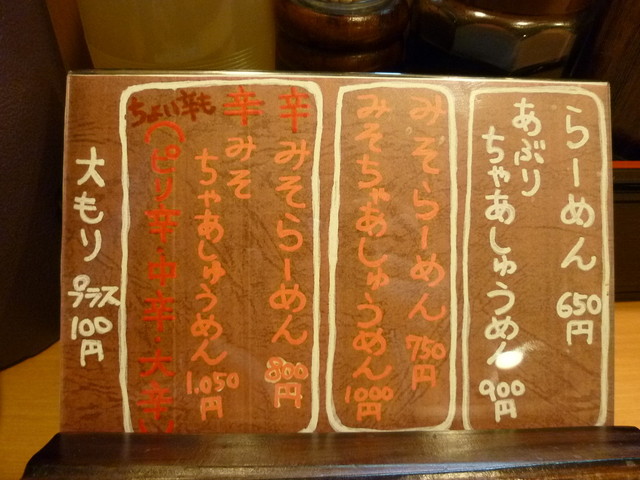 らーめん 650円
あぶり
ちゃあしゅうめん 900円
みそらーめん 750円
みそちゃあしゅうめん 1000円
辛みそらーめん 800円
辛みそ
ちゃあしゅうめん 1,050円
ちょい辛も
(ピリ辛・中辛・大辛)
大もり プラス100円